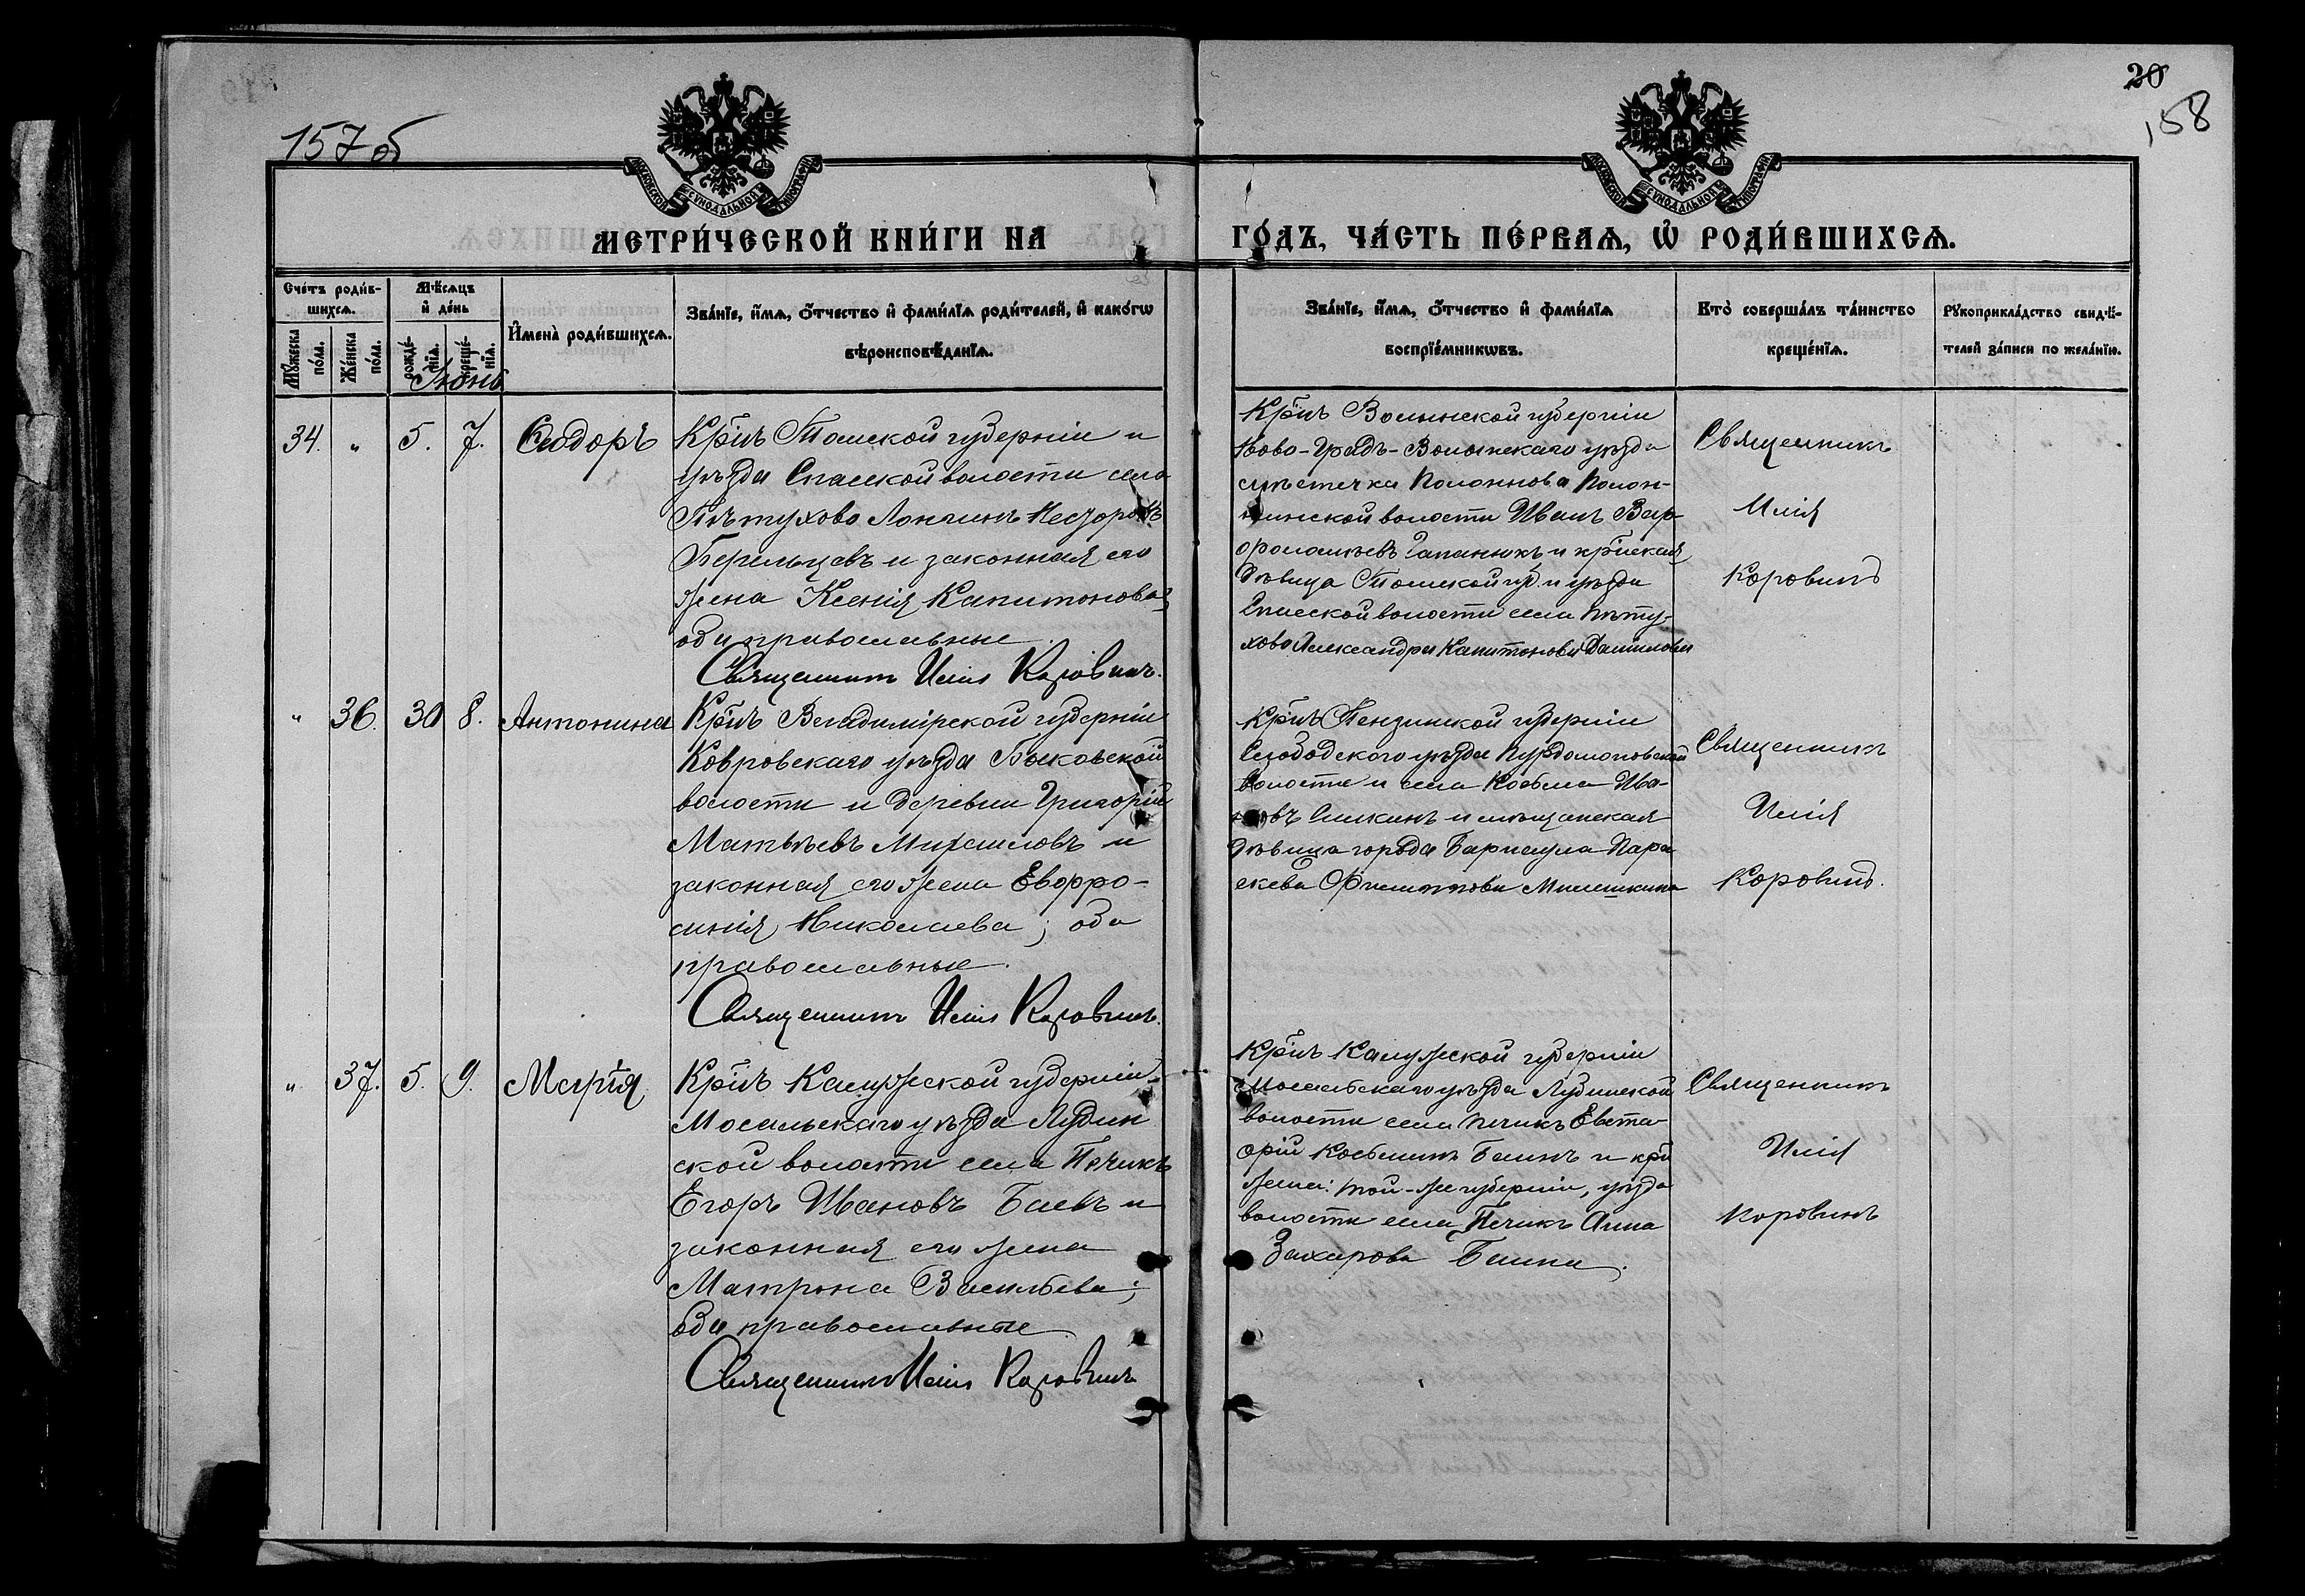 157об
20
158
МОСКОВСКОЙ СѴНОДАЛЬНОЙ ТИПОГРАФІИ
МОСКОВСКОЙ СѴНОДАЛЬНОЙ ТИПОГРАФІИ
МЕТРИ́ЧЕСКОЙ КНИ́ГИ НА
ГО́ДЪ, ЧА́СТЬ ПЕ́РВАѦ, Ѡ҆ РОДИ́ВШИХСѦ.
Сче́тъ роди́в-
шихсѧ.
Мꙋ́жеска по́ла.
Же́нска по́ла.
Мѣ́сѧцъ
и҆ де́нь
рожде́-
нїѧ.
креще́-
нїѧ.
И҆мена̀ роди́вшихсѧ.
Зва́нїе, и҆́мѧ, ѻ҆́тчество и҆ фами́лїѧ роди́телей, и҆ како́гѡ
вѣроисповѣ́данїѧ.
Зва́нїе, и҆́мѧ, ѻ҆́тчество и҆ фами́лїѧ
воспрїе́мникѡвъ.
Кто̀ соверша́лъ та́инство
креще́нїѧ.
Рꙋкоприкла́дство свидѣ́-
телей за́писи по жела́нїю.
Іюнь
34. " 5. 7. Ѳеодоръ
Кр̃нъ Томской губерніи и
уѣзда Спасской волости села
Пѣтухово Лонгинъ Несторовъ
и законная его
жена Ксенія Капитонова,
оба православные.
Священникъ Илія Коровинъ.
Кр̃нъ Волынской губерніи
Ново-Градъ-Волынскаго уѣзда
мѣстечка Полоннова Полон-
нинской волости Иванъ Вар-
ѳоломѣевъ Гапанюкъ и кр̃нская
дѣвица Томской губ. и уѣзда
Спасской волости села Пѣту-
хово Александра Капитонова Данилова
Священникъ
Илія
Коровинъ
" 36. 30 8. Антонина
Кр̃нъ Владимірской губерніи
Ковровскаго уѣзда Быковской
волости и деревни Григорій
Матвѣевъ Михаиловъ и
законная его жена Евфро-
синія Николаева; оба
православные.
Священникъ Илія Коровинъ.
Кр̃нъ Пензинской губерніи
волости и села Косьма Ива-
новъ и мѣщанская
дѣвица города Барнаула Пара-
скева Филиппова Милешкина
Священникъ
Илія
Коровинъ.
" 37. 5. 9. Марія
Кр̃нъ Калужской губерніи
Мосальскаго уѣзда Лудин
ской волости села Печикъ
Егоръ Ивановъ Баевъ и
законная его жена
Матрона Васильева;
оба православные
Священникъ Илія Коровинъ
Кр̃нъ Калужской губерніи
Мосальскаго уѣзда Лудинской
волости села Печикъ Евста-
фій Косьминъ Баинъ и кр̃н
жена: той-же губерніи, уѣзда
волости села Печикъ Анна
Захарова Баина.
Священникъ
Илія
Коровинъ